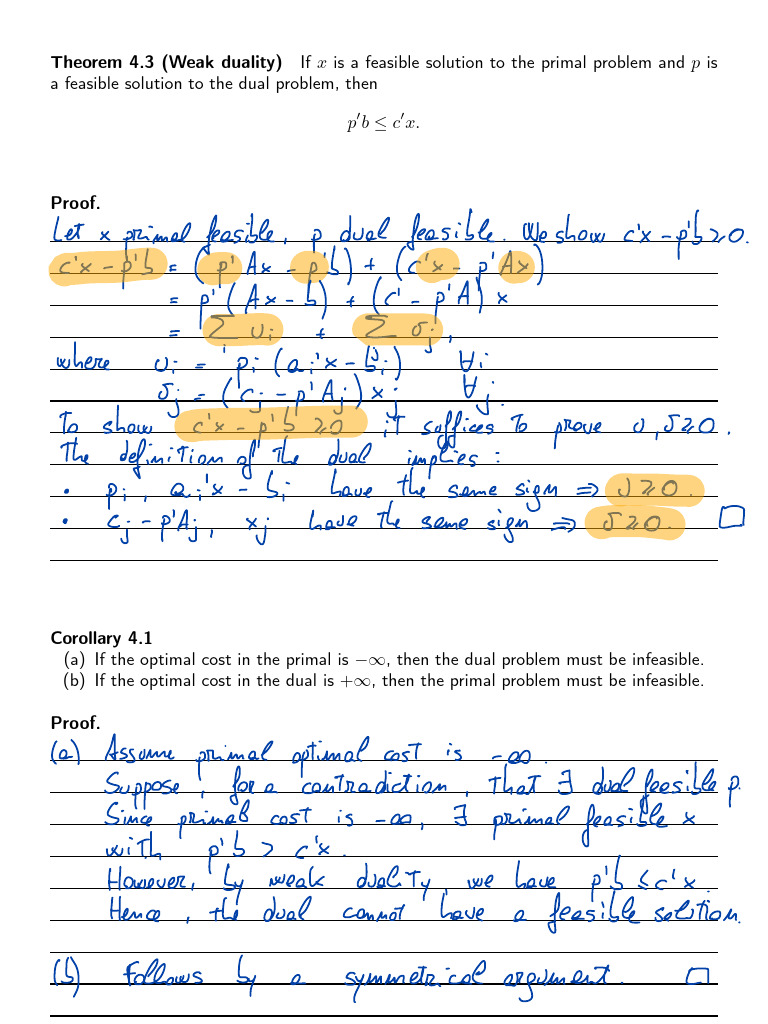 Theorem 4.3 (Weak duality) If x is a feasible solution to the primal problem and p is
a feasible solution to the dual problem, then
p′b ≤ c′x.
Proof.
Let x primal feasible, p dual feasible. We show c'x - p'b ≥ 0.
c'x - p'b = (p'Ax - p'b) + (c'x - p'Ax)
= p'(Ax - b) + (c' - p'A) x
= Σ υi + Σ σj ,
where υi = pi (ai'x - bi) ∀i
σj = (cj - p'Aj) xj ∀j
To show c'x - p'b ≥ 0 it suffices to prove υ, σ ≥ 0.
The definition of the dual implies:
• pi, ai'x - bi have the same sign ⇒ υ ≥ 0.
• cj - p'Aj, xj have the same sign ⇒ σ ≥ 0. □
Corollary 4.1
(a) If the optimal cost in the primal is −∞, then the dual problem must be infeasible.
(b) If the optimal cost in the dual is +∞, then the primal problem must be infeasible.
Proof.
(a) Assume primal optimal cost is -∞.
Suppose, for a contradiction, that ∃ dual feasible p.
Since primal cost is -∞, ∃ primal feasible x
with p'b > c'x.
However, by weak duality, we have p'b ≤ c'x.
Hence, the dual cannot have a feasible solution.
(b) Follows by a symmetrical argument. □